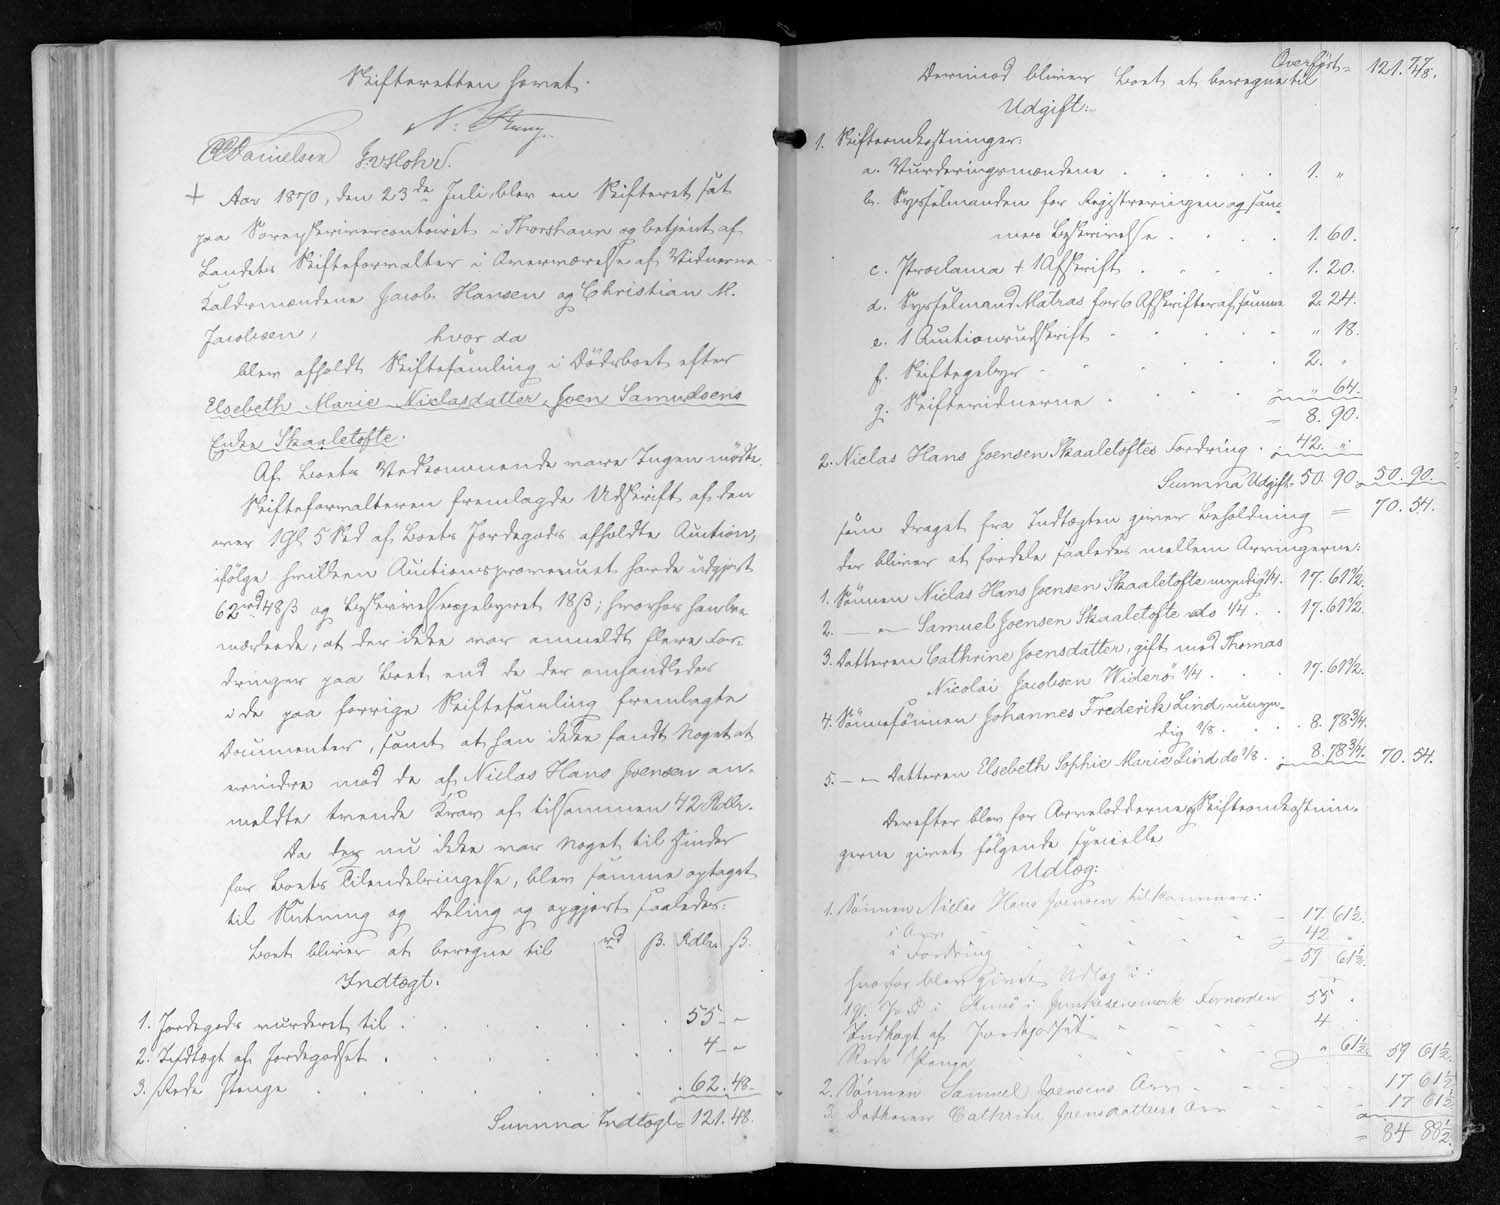 Skifteretten hævet.
CCDanielsen J. v. Slohr.
+ Aar 1870, den 23de Juli, blev en Skifteret sat
paa Sorenskrivercontoiret i Thorshavn og betjent af
Landets Skifteforvalter i Overværelse af Vidnerne
Kaldsmændene Jacob Hansen og Christian M.
Jacobsen, hvor da
blev afholdt Skiftesamling i Dödsboet efter
Elsebeth Marie Niclasdatter, Joen Samuelsens
Enke Skaaletofte.
Af Boets Vedkommende vare Ingen mødte.
Skifteforvalteren fremlagde Udskrift af den
over 1 Gl 5 Skd af Boets Jordegods afholdte Auction,
ifølge hvilken Auctionsprovenuet havde udgjort
62 rd 48 ß og Beskrivelsesgebyret 18 ß; hvorhos han be-
mærkede, at der ikke var anmeldt flere For-
dringer paa Boet end de der omhandledes
i de paa forrige Skiftesamling fremlagte
Documenter, samt at han ikke fandt Noget at
erindre mod de af Niclas Hans Joensen an-
meldte tvende Krav af tilsammen 42 Rdlr.
Da der nu ikke var Noget til Hinder
for Boets Tilendebringelse, blev samme optaget
til Slutning og Deling og opgjort saaledes:
Boet bliver at beregne til rd ß. Rdlr ß.
Indtægt.
1. Jordegods vurderet til . . . . 55 - "
2. Indtægt af Jordegodset . . . . 4 - "
3. Rede Penge . . . . 62. 48.
Summa Indtægt = 121. 48.
Overført = 121. 48.
Dermod bliver Boet at beregne til
Udgift:
1. Skifteomkostninger:
a. Vurderingsmændene . . . . 1. "
b. Sysselmanden for Registreringen og sam-
mes Beskrivelse . . . . 1. 60.
c. Proclama + 1 Afskrift . . . . 1. 20.
d. Sysselmand Matras for 6 Afskrifter af samme 2. 24.
e. 1 Auctionsudskrift . . . . " 18.
f. Skiftegebyr . . . . 2. "
g. Skiftevidnerne . . . . " 64.
= 8. 90.
2. Niclas Hans Joensen Skaaletoftes Fordring . 42. "
Summa Udgift = 50. 90 = 50. 90.
som draget fra Indtægten giver Beholdning = 70. 54.
der bliver at fordele saaledes mellem Arvingerne:
1. Sønnen Niclas Hans Joensen Skaaletofte myndig 1/4. 17. 61 1/2.
2. — " — Samuel Joensen Skaaletofte do 1/4 . . 17. 61 1/2.
3. Datteren Cathrine Joensdatter, gift med Thomas
Nicolai Jacobsen Widerö 1/4 . . . 17. 61 1/2.
4. Sønnesønnen Johannes Frederik Lind, umyn-
dig 1/8 . . . 8. 78 3/4.
5. — " — Datteren Elsebeth Sophie Marie Lind do 1/8 . 8. 78 3/4. 70. 54.
Derefter blev for Arvelodderne og Skifteomkostnin-
gerne givet følgende specielle
Udlæg:
1. Sønnen Niclas Hans Joensen tilkommer:
i Arv 17. 61 1/2.
i Fordring 42 "
= 59 61 1/2.
hvorfor blev givet Udlæg i:
Fornorden 55 "
Indtægt af Jordegodset 4 "
Rede Penge " 61 1/2. 59 61 1/2.
2. Sønnen Samuel Joensens Arv 17 61 1/2
3. Datteren Cathrine Joensdatters Arv 17 61 1/2
= 84 88 1/2.